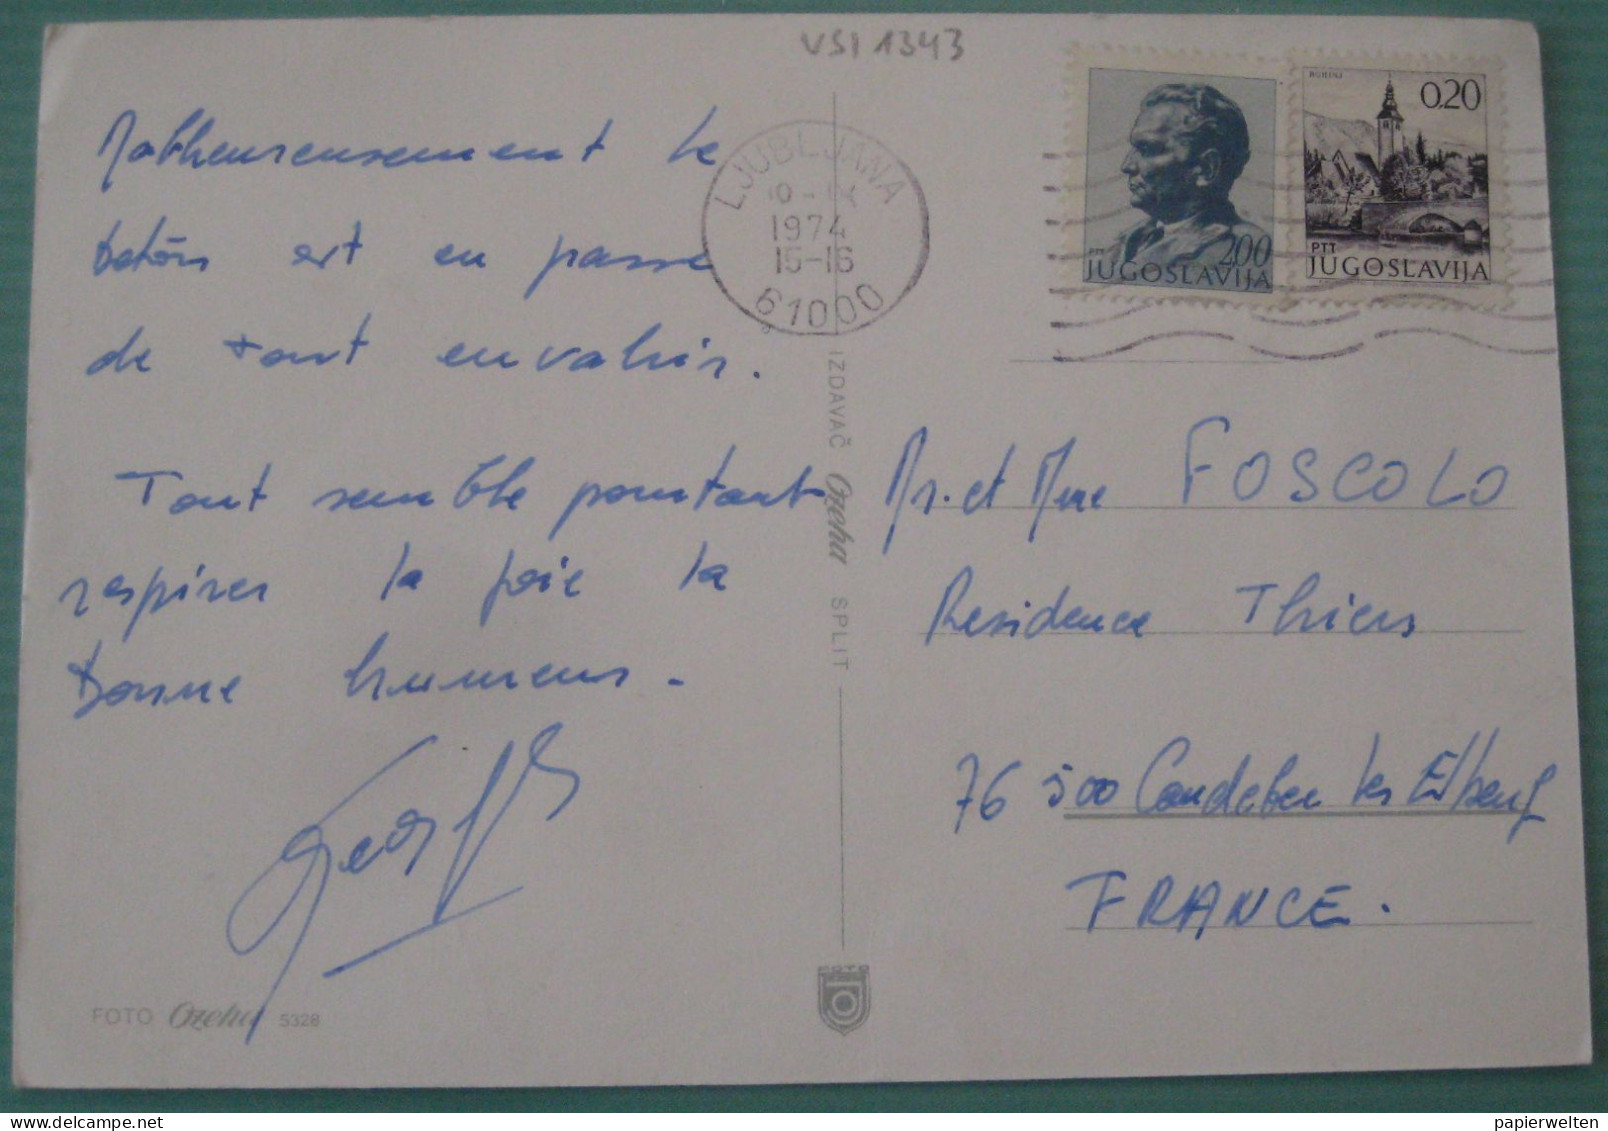 VSI 1343
Malheureusement le
betôn est en passe
de tout envahir.
Tout semble pourtant
respirer la joie la
bonne humeur.
FOTO Ozeha 5328
LJUBLJANA
1974
15-16
61000
IZDAVAČ Ozeha SPLIT
BOHINJ
2,00
PTT
JUGOSLAVIJA
0,20
PTT
JUGOSLAVIJA
Mr. et Mme FOSCOLO
Residence Thiers
76 500 Caudebec les Elbeuf
FRANCE.
papierwelten